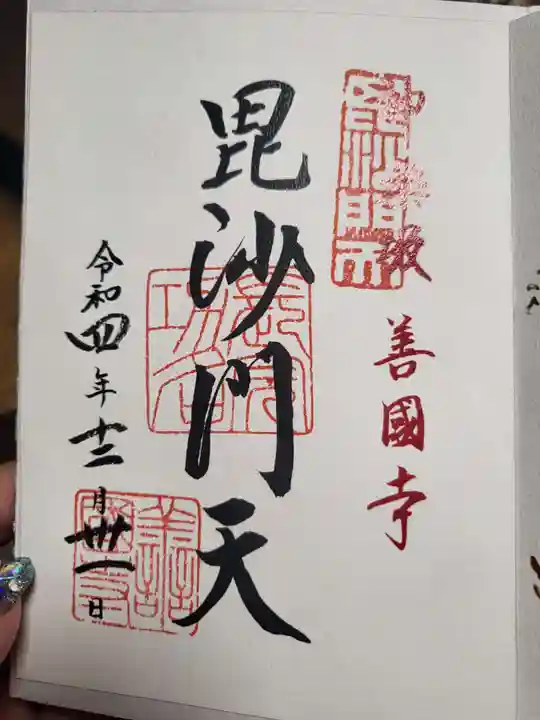 神楽坂 善國寺
毘沙門天
令和四年十二月卅一日